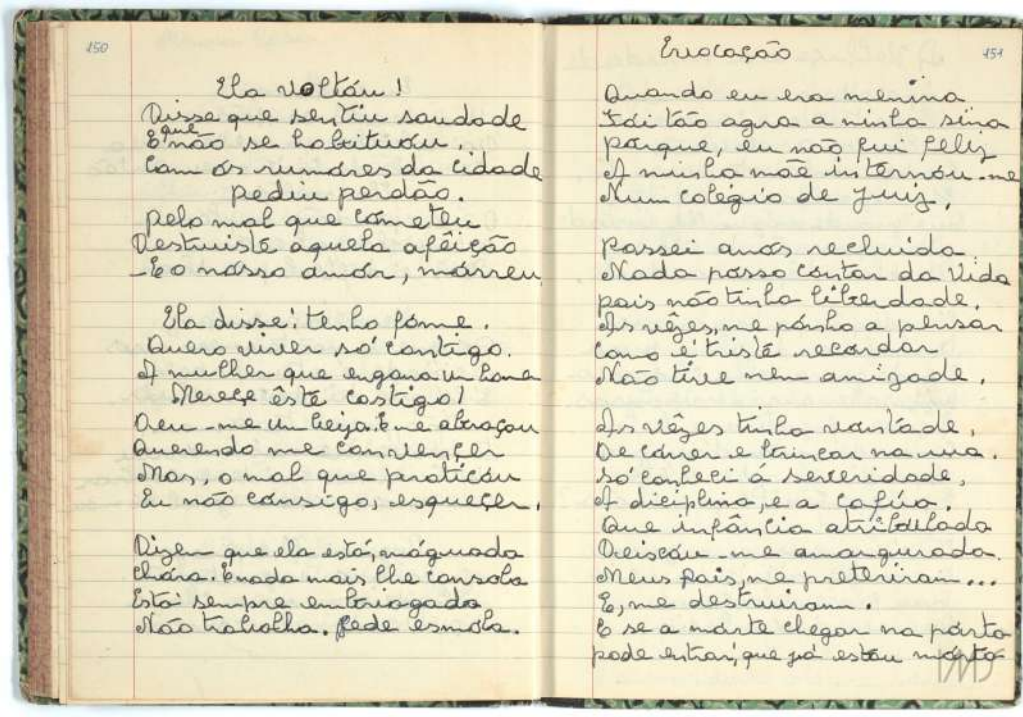 150
Ela voltóu!
Disse que sentiu saudade
E que não se habituóu.
Com os rumóres da cidade
pediu perdão.
pelo mal que cometeu
Destruiste aquela afêição
-E o nósso amór, mórreu

Ela disse: tenho fóme.
Quero viver só contigo.
A mulher que engana um home
Mereçe êste castigo!
Deu-me um beijo. E me abraçou
Querendo me convençer
Mas, o mal que praticóu
Eu não consigo, esqueçer.

Dizem que ela está, máguada
Chóra. E nada mais lhe consóla
Está sempre embriagada
Não trabalha. pede esmola.

Evocação
151
Quando eu era menina
Fói tão agra a minha sina
pórque, eu não fui feliz
A minha mãe internóu-me
Num colégio de Juiz.

passei anos recluida
Nada pósso contar da Vida
pois não tinha liberdade.
As vêzes, me pónho a pensar
Cómo é triste recórdar
Não tive nem amizade.

As vêzes tinha vontade.
De córrer e brincar na rua.
só conheci á severidade,
A diciplina, e a cafúa.
Que infânçia atribulada
Deixóu-me amargurada.
Meus pais, me preteriram...
E, me destruiram.
E se a mórte chegar na pórta
pode entrar, que já estóu mórta
IMS